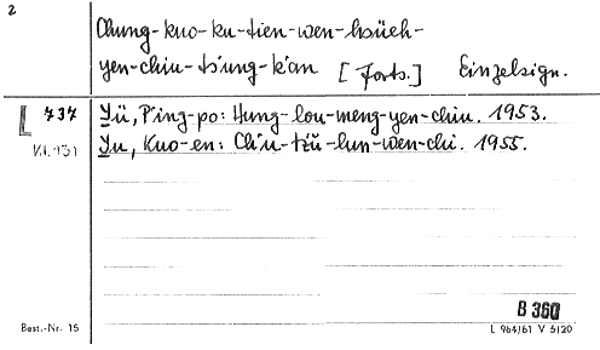 2
Chung-kuo-ku-tien-wen-hsüeh-
yen-chiu-ts'ung-k'an [Forts.] Einzelsign.
L 737 Yü, P'ing-po: Hung-lou-meng-yen-chiu. 1953.
Yu, Kuo-en: Ch'u-tz'ŭ-lun-wen-chi. 1955.
B 360
Best.-Nr. 15 L 964/61 V 5120